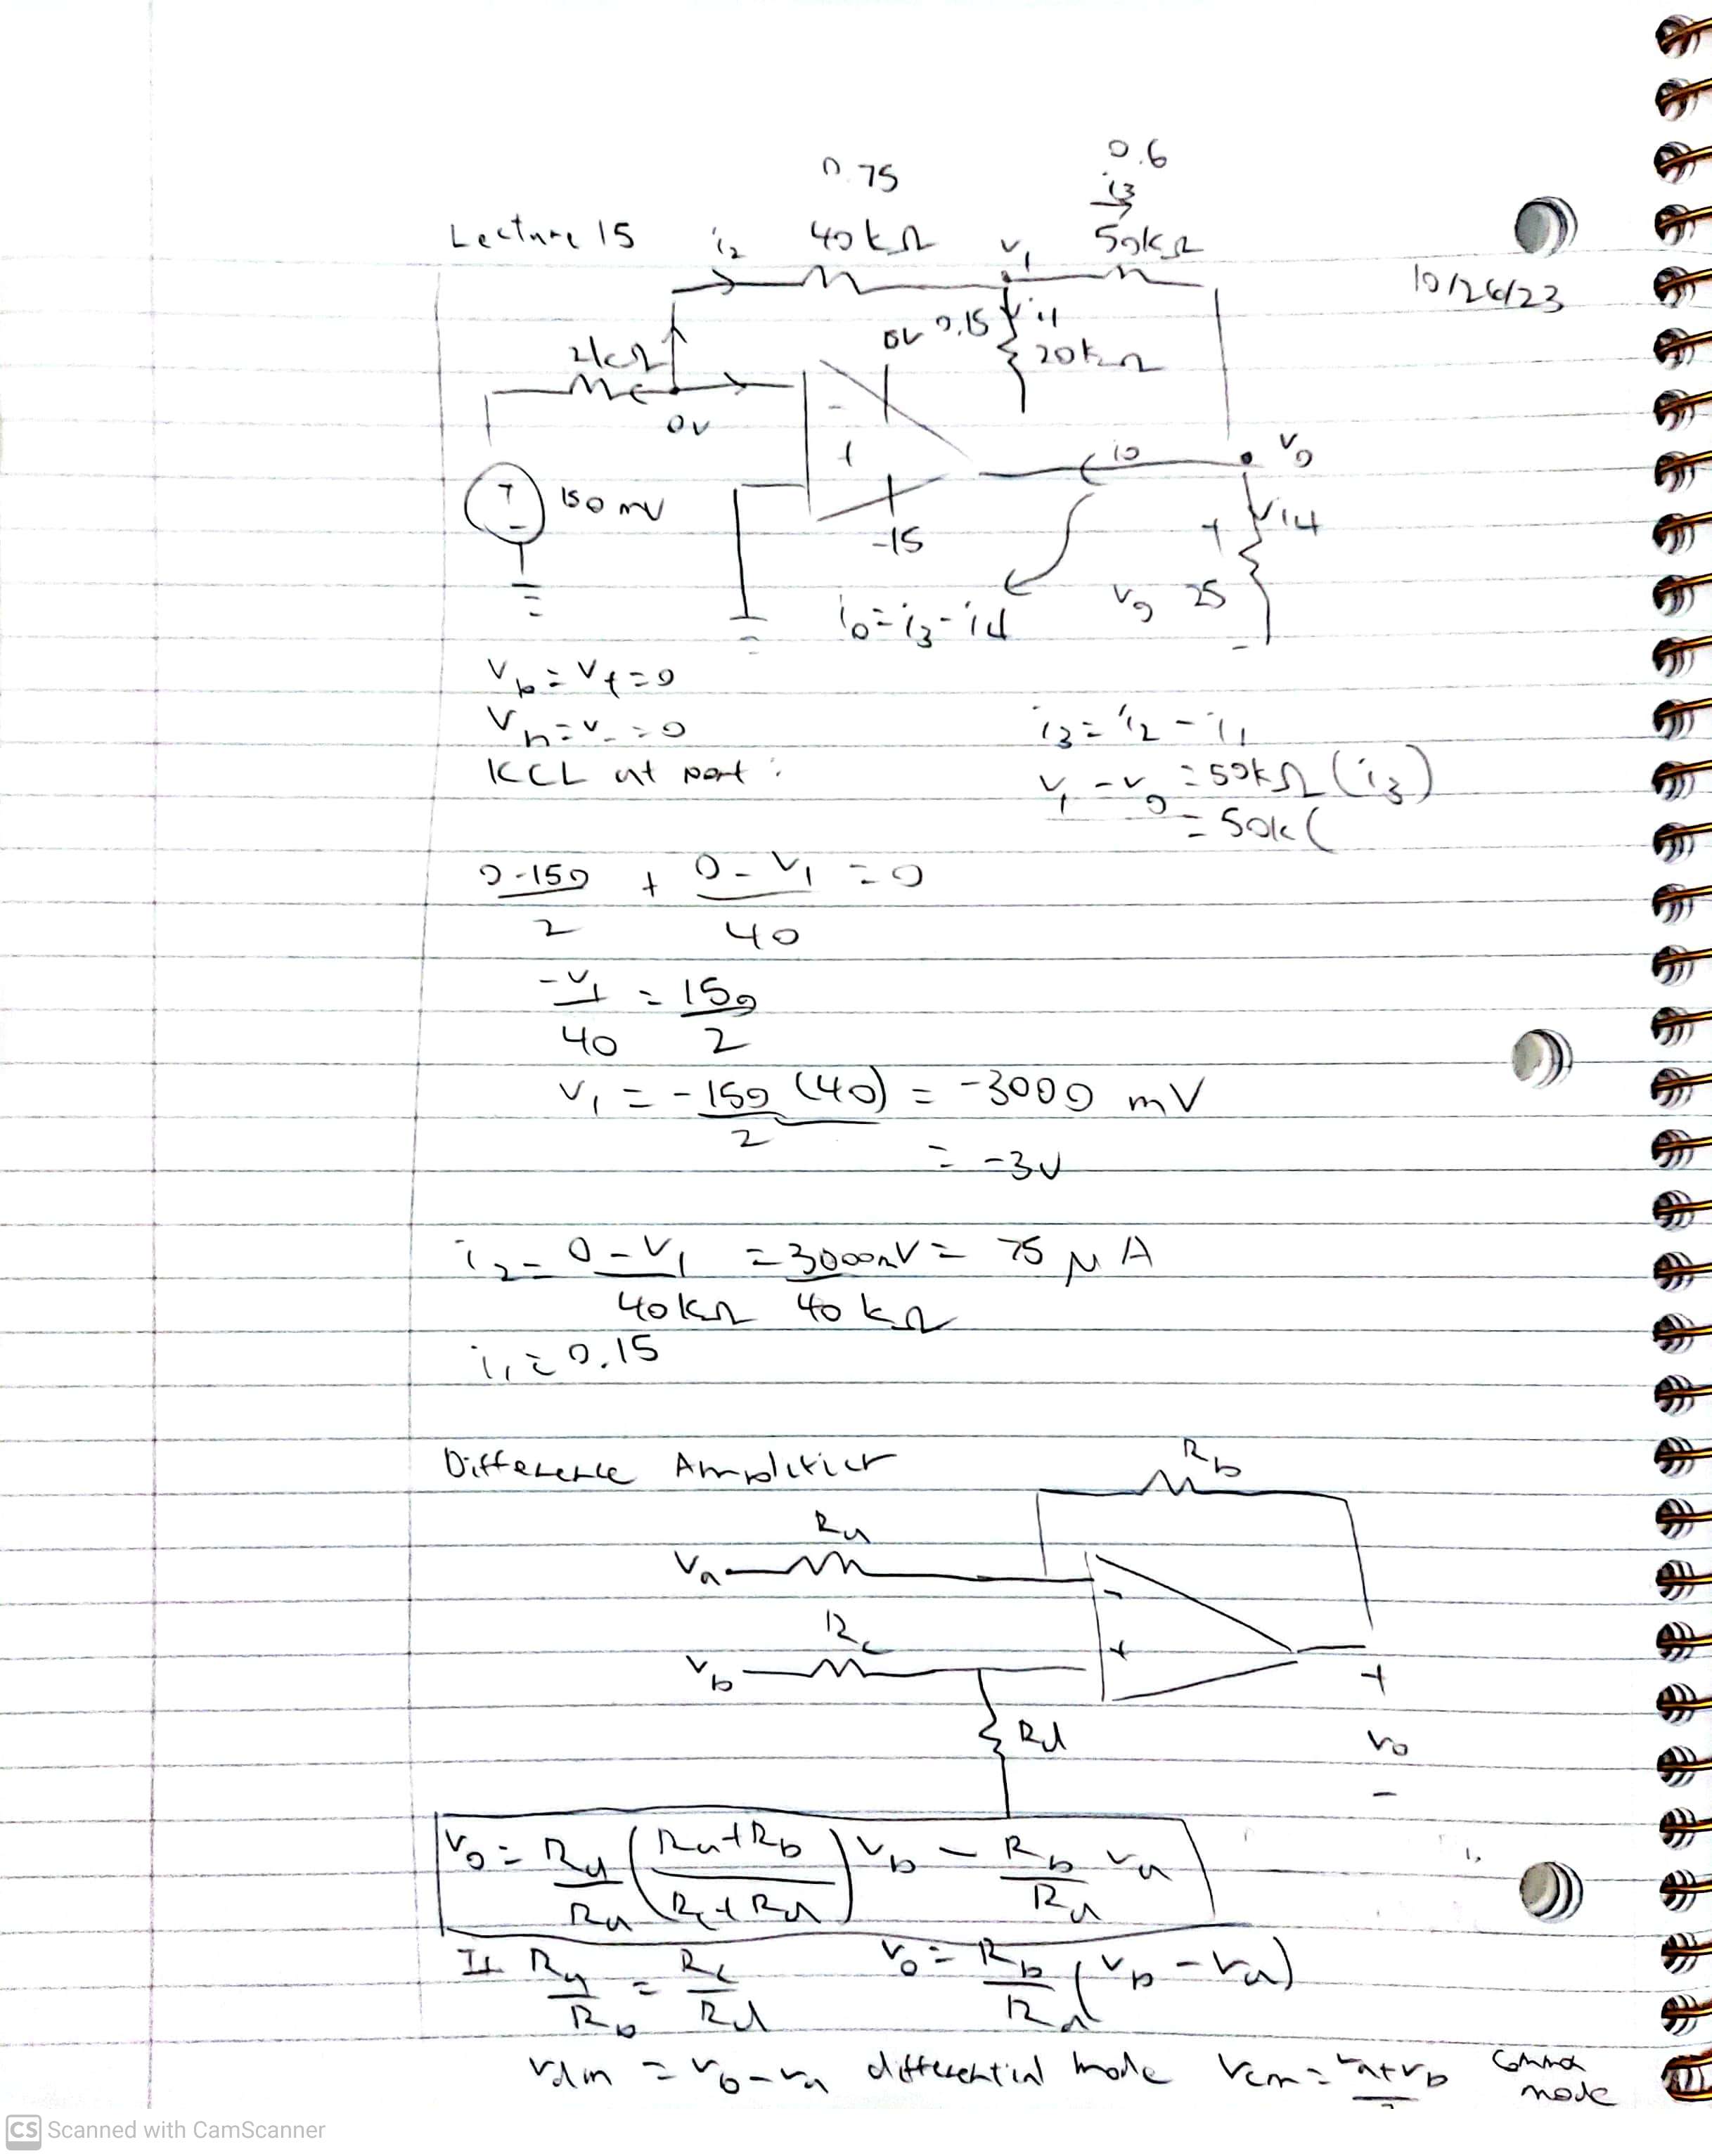 0.75
0.6
i3
Lecture 15
i2
40kΩ
v1
50kΩ
10/26/23
0.15
i1
2kΩ
20kΩ
0V
-
+
i0
v0
+
-
150 mV
-15
i4
+
v0
25
-
i0 = i3 - i4
Vp = V+ = 0
Vn = V- = 0
i3 = i2 - i1
KCL at port :
v1 - v0 = 50kΩ (i3)
= 50k(
0-150/2 + 0-V1/40 = 0
-V1/40 = 150/2
V1 = -150/2 (40) = -3000 mV
= -3V
i2 = 0-V1/40kΩ = 3000mV/40kΩ = 75 μA
i1 = 0.15
Difference Amplifier
Rb
Ra
Va
-
Rc
+
Vb
+
Rd
vo
-
Vo = Rd/Ra (Ra+Rb/Rc+Rd) Vb - Rb/Ra Va
If Ra/Rb = Rc/Rd
Vo = Rb/Ra (Vb - Va)
Vdm = Vb - Va differential mode Vcm = Va+Vb/2 common
mode
CS Scanned with CamScanner